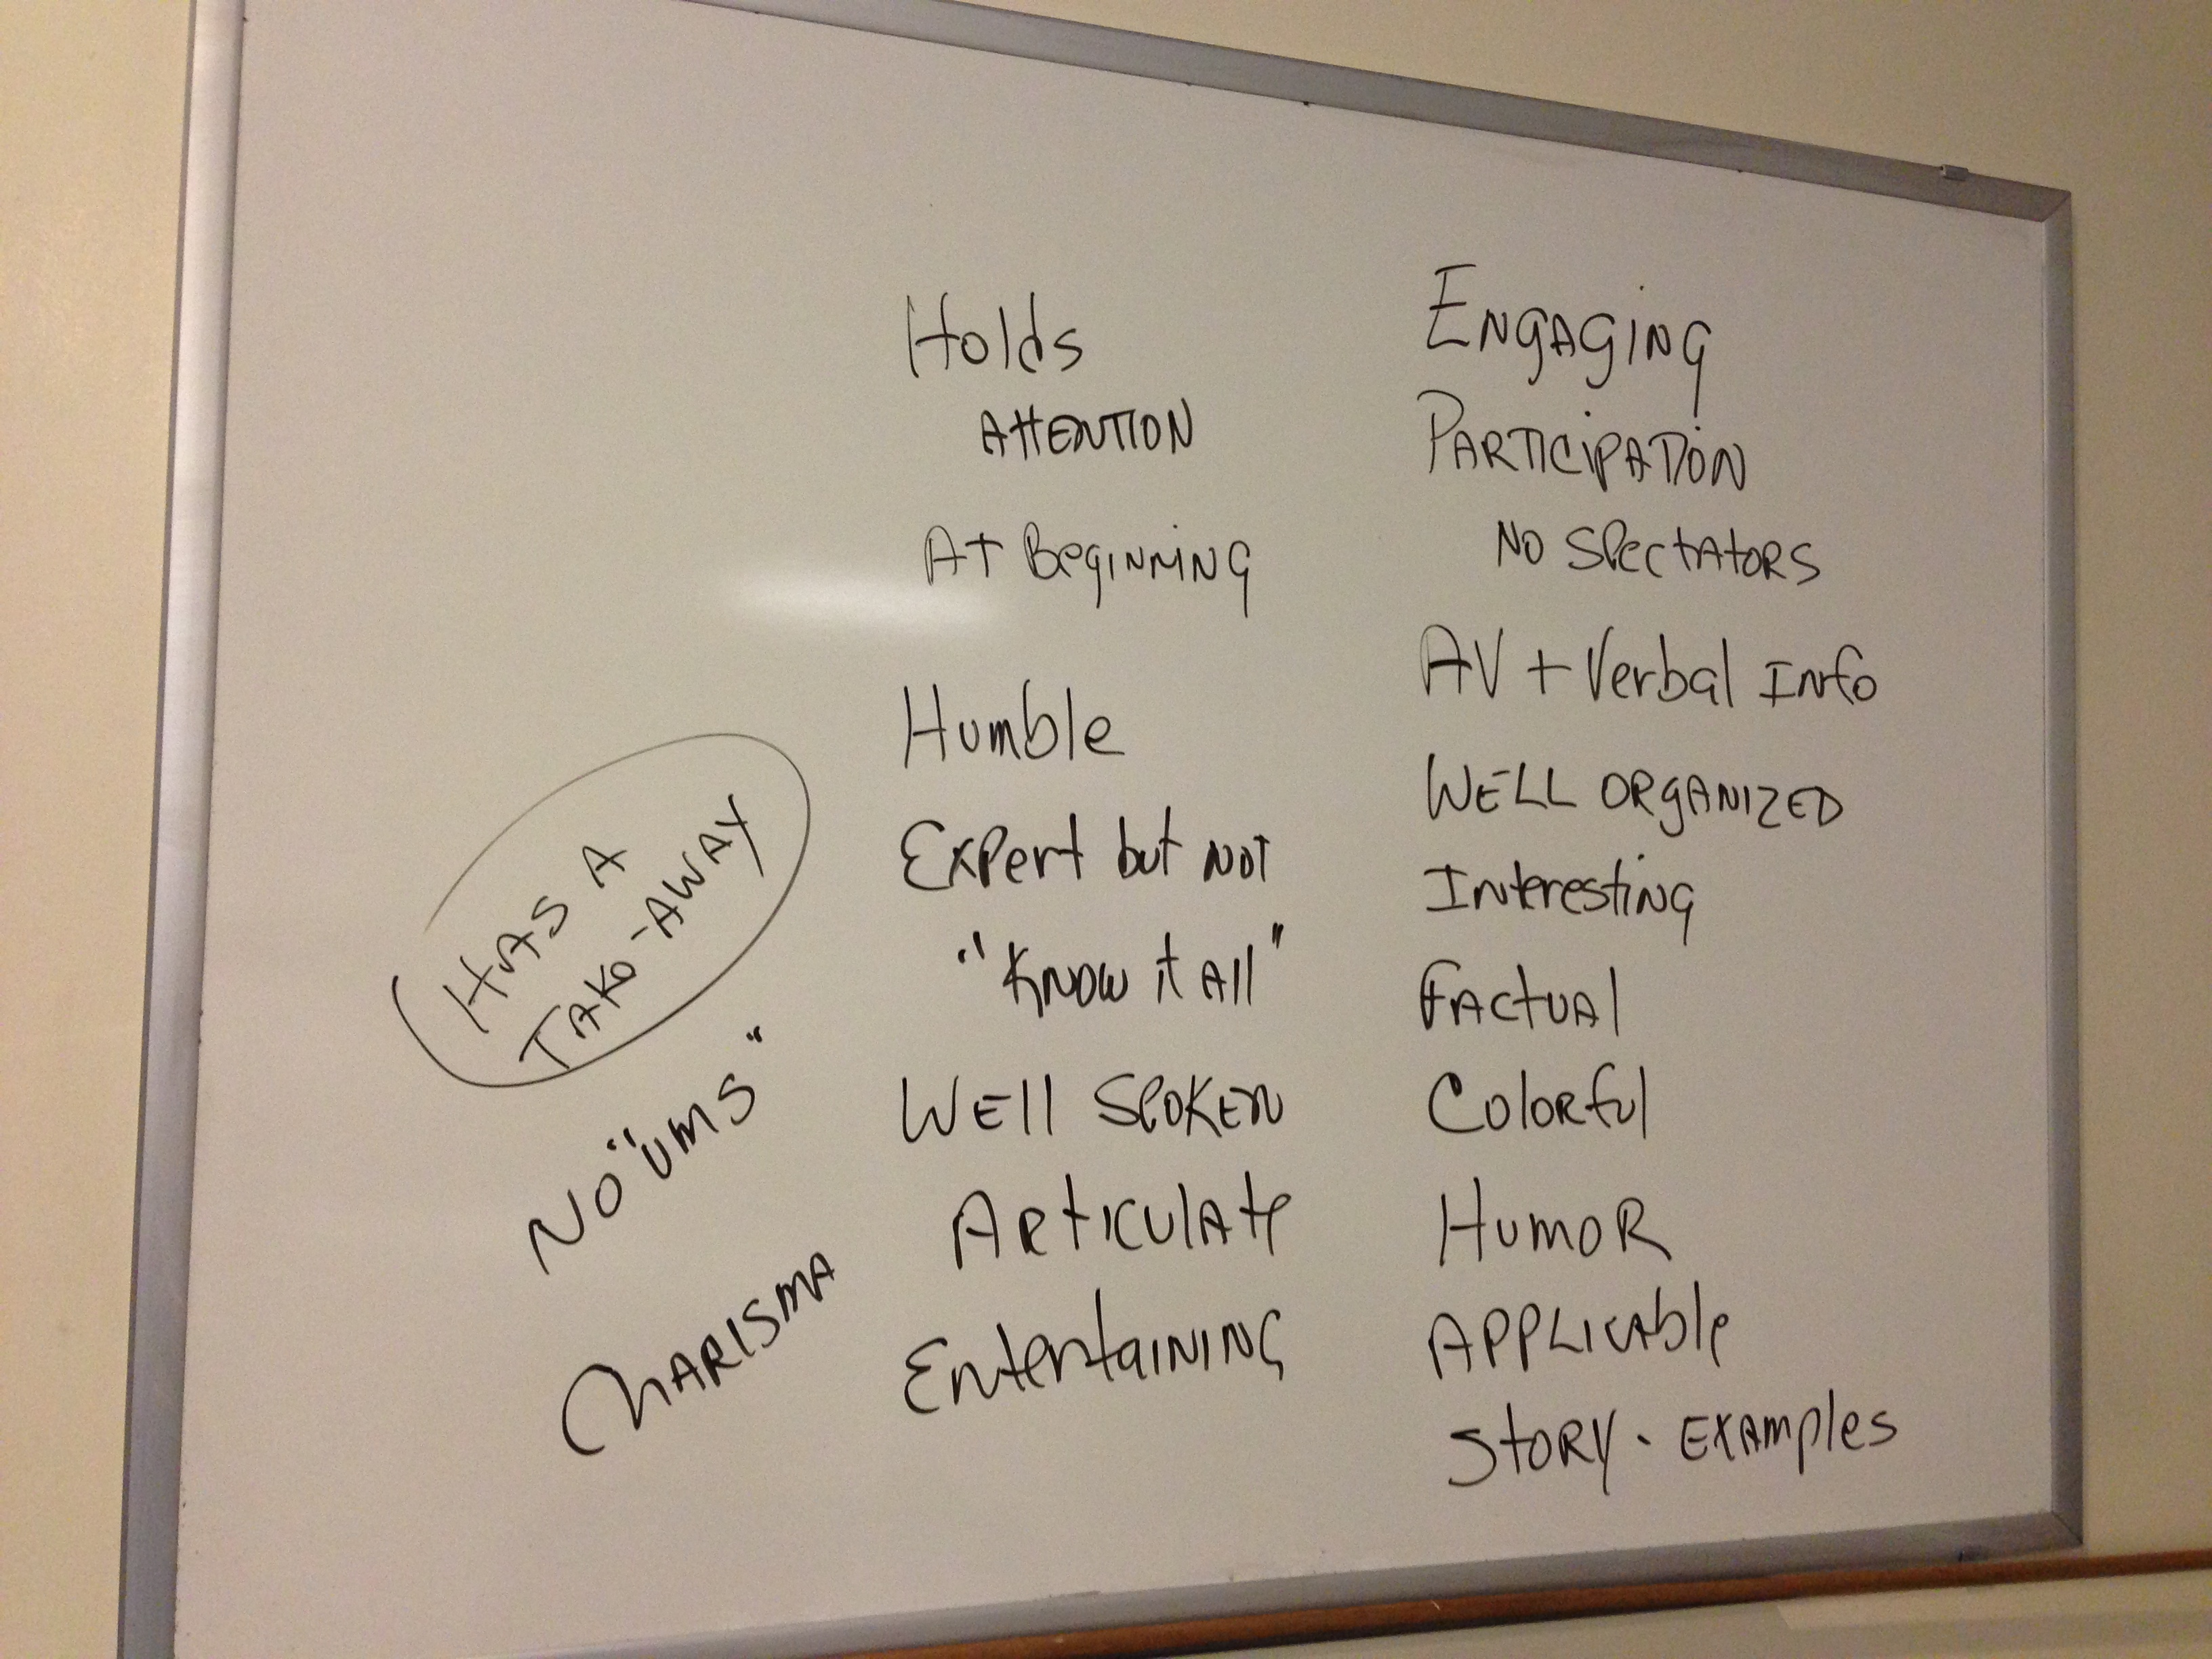 Holds
Attention
At Beginning
Humble
Expert but not
"Know it All"
Well Spoken
Articulate
Entertaining
Engaging
Participation
No Spectators
AV + Verbal Info
Well Organized
Interesting
Factual
Colorful
Humor
Applicable
Story - Examples
Has A
Take-Away
No "ums"
Charisma